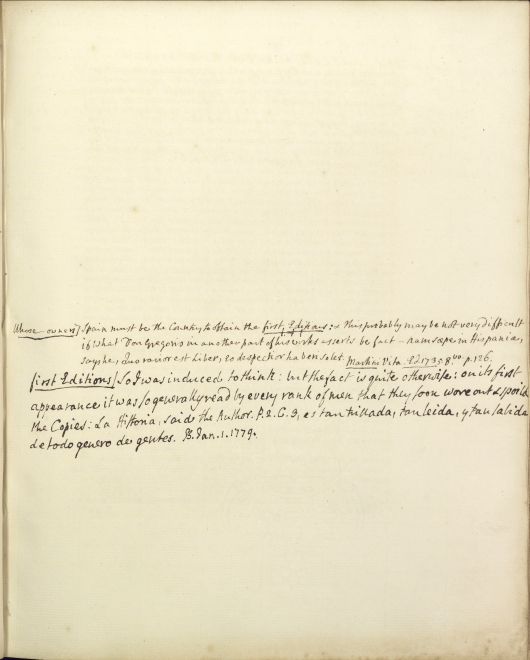 Whose owners] Spain must be the Country to obtain the first Editions:- this probably may be not very difficult
if what Don Gregorio in another part of his works asserts be fact - nam sæpe in Hispania,
says he, quo rarior est Liber, eo despectior haberi solet. Martini Vita Ed. 1735 8vo p. 126.
first Editions] So I was induced to think: but the fact is quite otherwise: on its first
appearance it was so generally read by every rank of men that they soon wore out & spoild
the Copies: La Historia, said the Author. P. 2. C. 3, es tan trillada, tan leida, y tan sabida
de todo genero de gentes. B. Jan. 1. 1779.